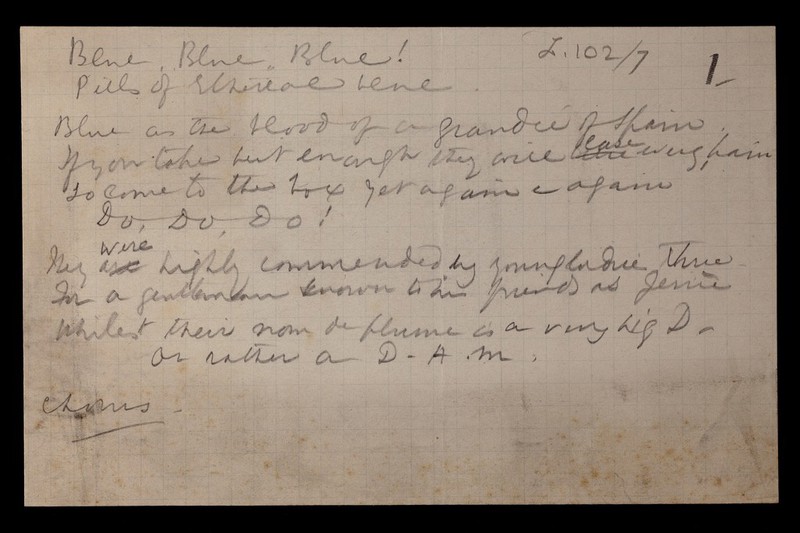 Blue, Blue, Blue!
Z.102/7
1
Pills of Ethereal blue.
Blue as the blood of a grandee of Spain.
If you take but enough they will ease every pain
So come to the box yet again & again
Do, Do, Do!
They were highly commended by young ladies three
For a gentleman known to his friends as
Whilest their nom de plume is a very big D-
Or rather a D-A-m.
Chorus -